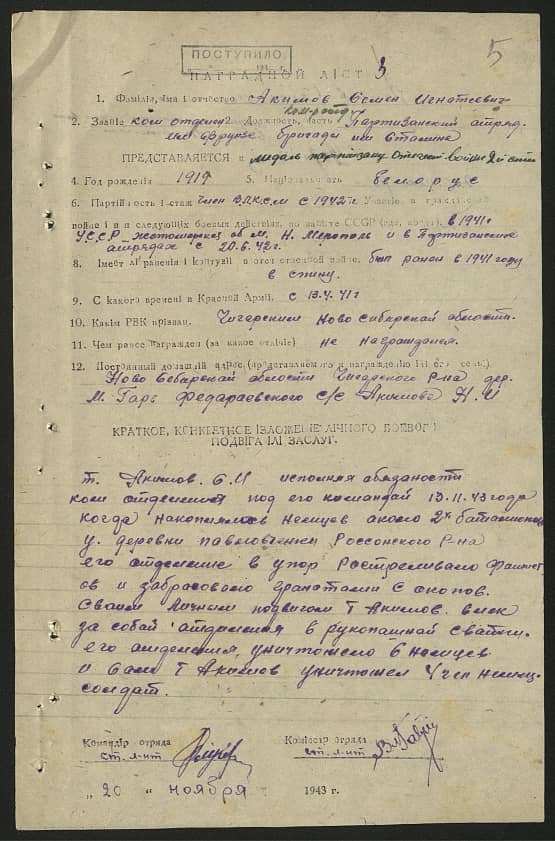 ПОСТУПИЛО
5
НАГРАДНОЙ ЛІСТ 3
1. Фаміліе, іма і отчество Акимов Семен Игнатьевич
2. Звание ком отделен. Должность, часть Партизанский отряд
им Фрунзе бригады им Сталина
ПРЕДСТАВЛЯЕТСЯ к медаль партизану отечест. войны 2й степ
4. Год рождения 1919 5. Національность белорус
6. Партійность і стаж член ВЛКСМ с 1942 г. Участие в гражданской
войне и и следующіх боевых действіях по защіте СССР (где, когда) в 1941г
УССР житомирская об м. Н. Мирополь и в Партизанских
отрядах с 20.6.42г.
8. Імеет лі ранения і контузіі в отечественной войне был ранен в 1941 году
в спину.
9. С какого времени в Красной Армії, с 13.4.41г
10. Какім РВК прізван. Чигерским Новосибирской области.
11. Чем ранее награжден (за какое отлічіе) не награждался.
12. Постоянный домашній адрес (представляемого к награжденію ілі его семьі)
Ново Себирской области Чигерского р-на дер.
М. Гарь Федараевского с/с Акимова Н. И
КРАТКОЕ, КОНКРЕТНОЕ ІЗЛОЖЕНІЕ ЛІЧНОГО БОЕВОГО
ПОДВІГА ІЛІ ЗАСЛУГ.
т. Акимов. С.И исполняя обязаности
ком отделения под его командай 13.11.43 года
когда накопилось немцев около 2х баталионов
у. деревни Россонского р-на
его отделение в упор Ростреливало фашист
ов и забрасовало гранатами с окопов.
Своим личным подвигом Т Акимов. влек
за собой отделения в рукопашной
его отделения, уничтожело 6 немцев
и сам Т Акимов уничтожел 4 чел немец.
солдат.
Командір отряда
ст. л-нт
Комісвр отряда
ст. л-нт
„ 20 " ноября 1943 г.